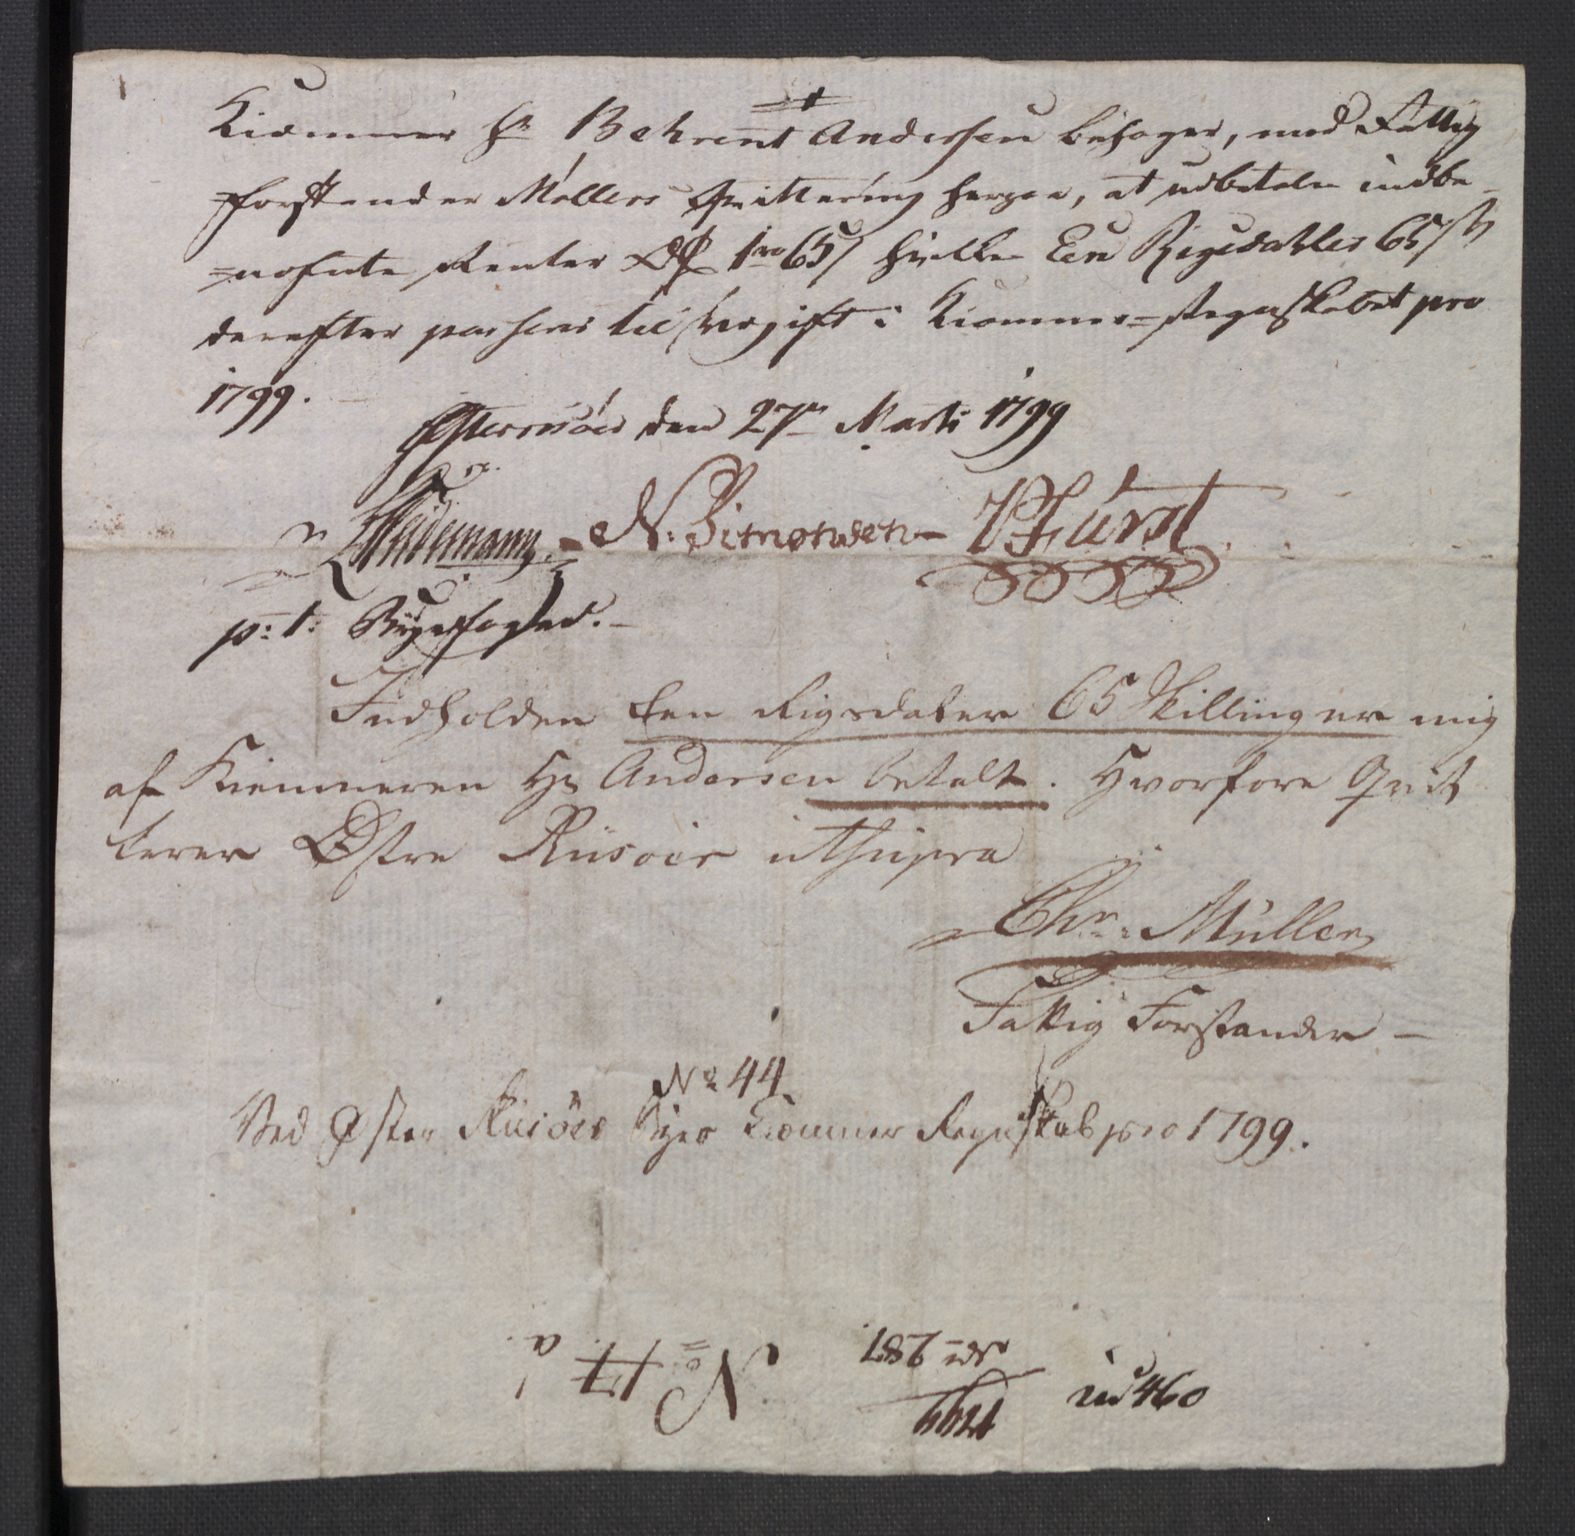 Kiæmner Hr Behrent Andersen behager, med Fattig
forstander Møllers Qvittering herpaa, at udbetale indbe-
=nefnte Renter 1 rd 65 s hvilke Een Rigsdahler 65 s
derefter passerer til Udgift i Kiæmner=Regnskabet pro
1799.
Østerrisøer den 27de Marti 1799
Weidemann. N: Simonsen P Fürst
p: t: Byefoged.
Indholden Een Rigsdaler 65 Skillinger mig
af Kiemneren Hr Andersen betalt. Hvorfore Qvit
terer Østre Riisøer ut supra
Chr: Müller
Fattig Forstander
No 44
Ved Øster Riisöer Byes Kiæmner Regnskab pro 1799.
No 17 a.
287
1799
ind 460